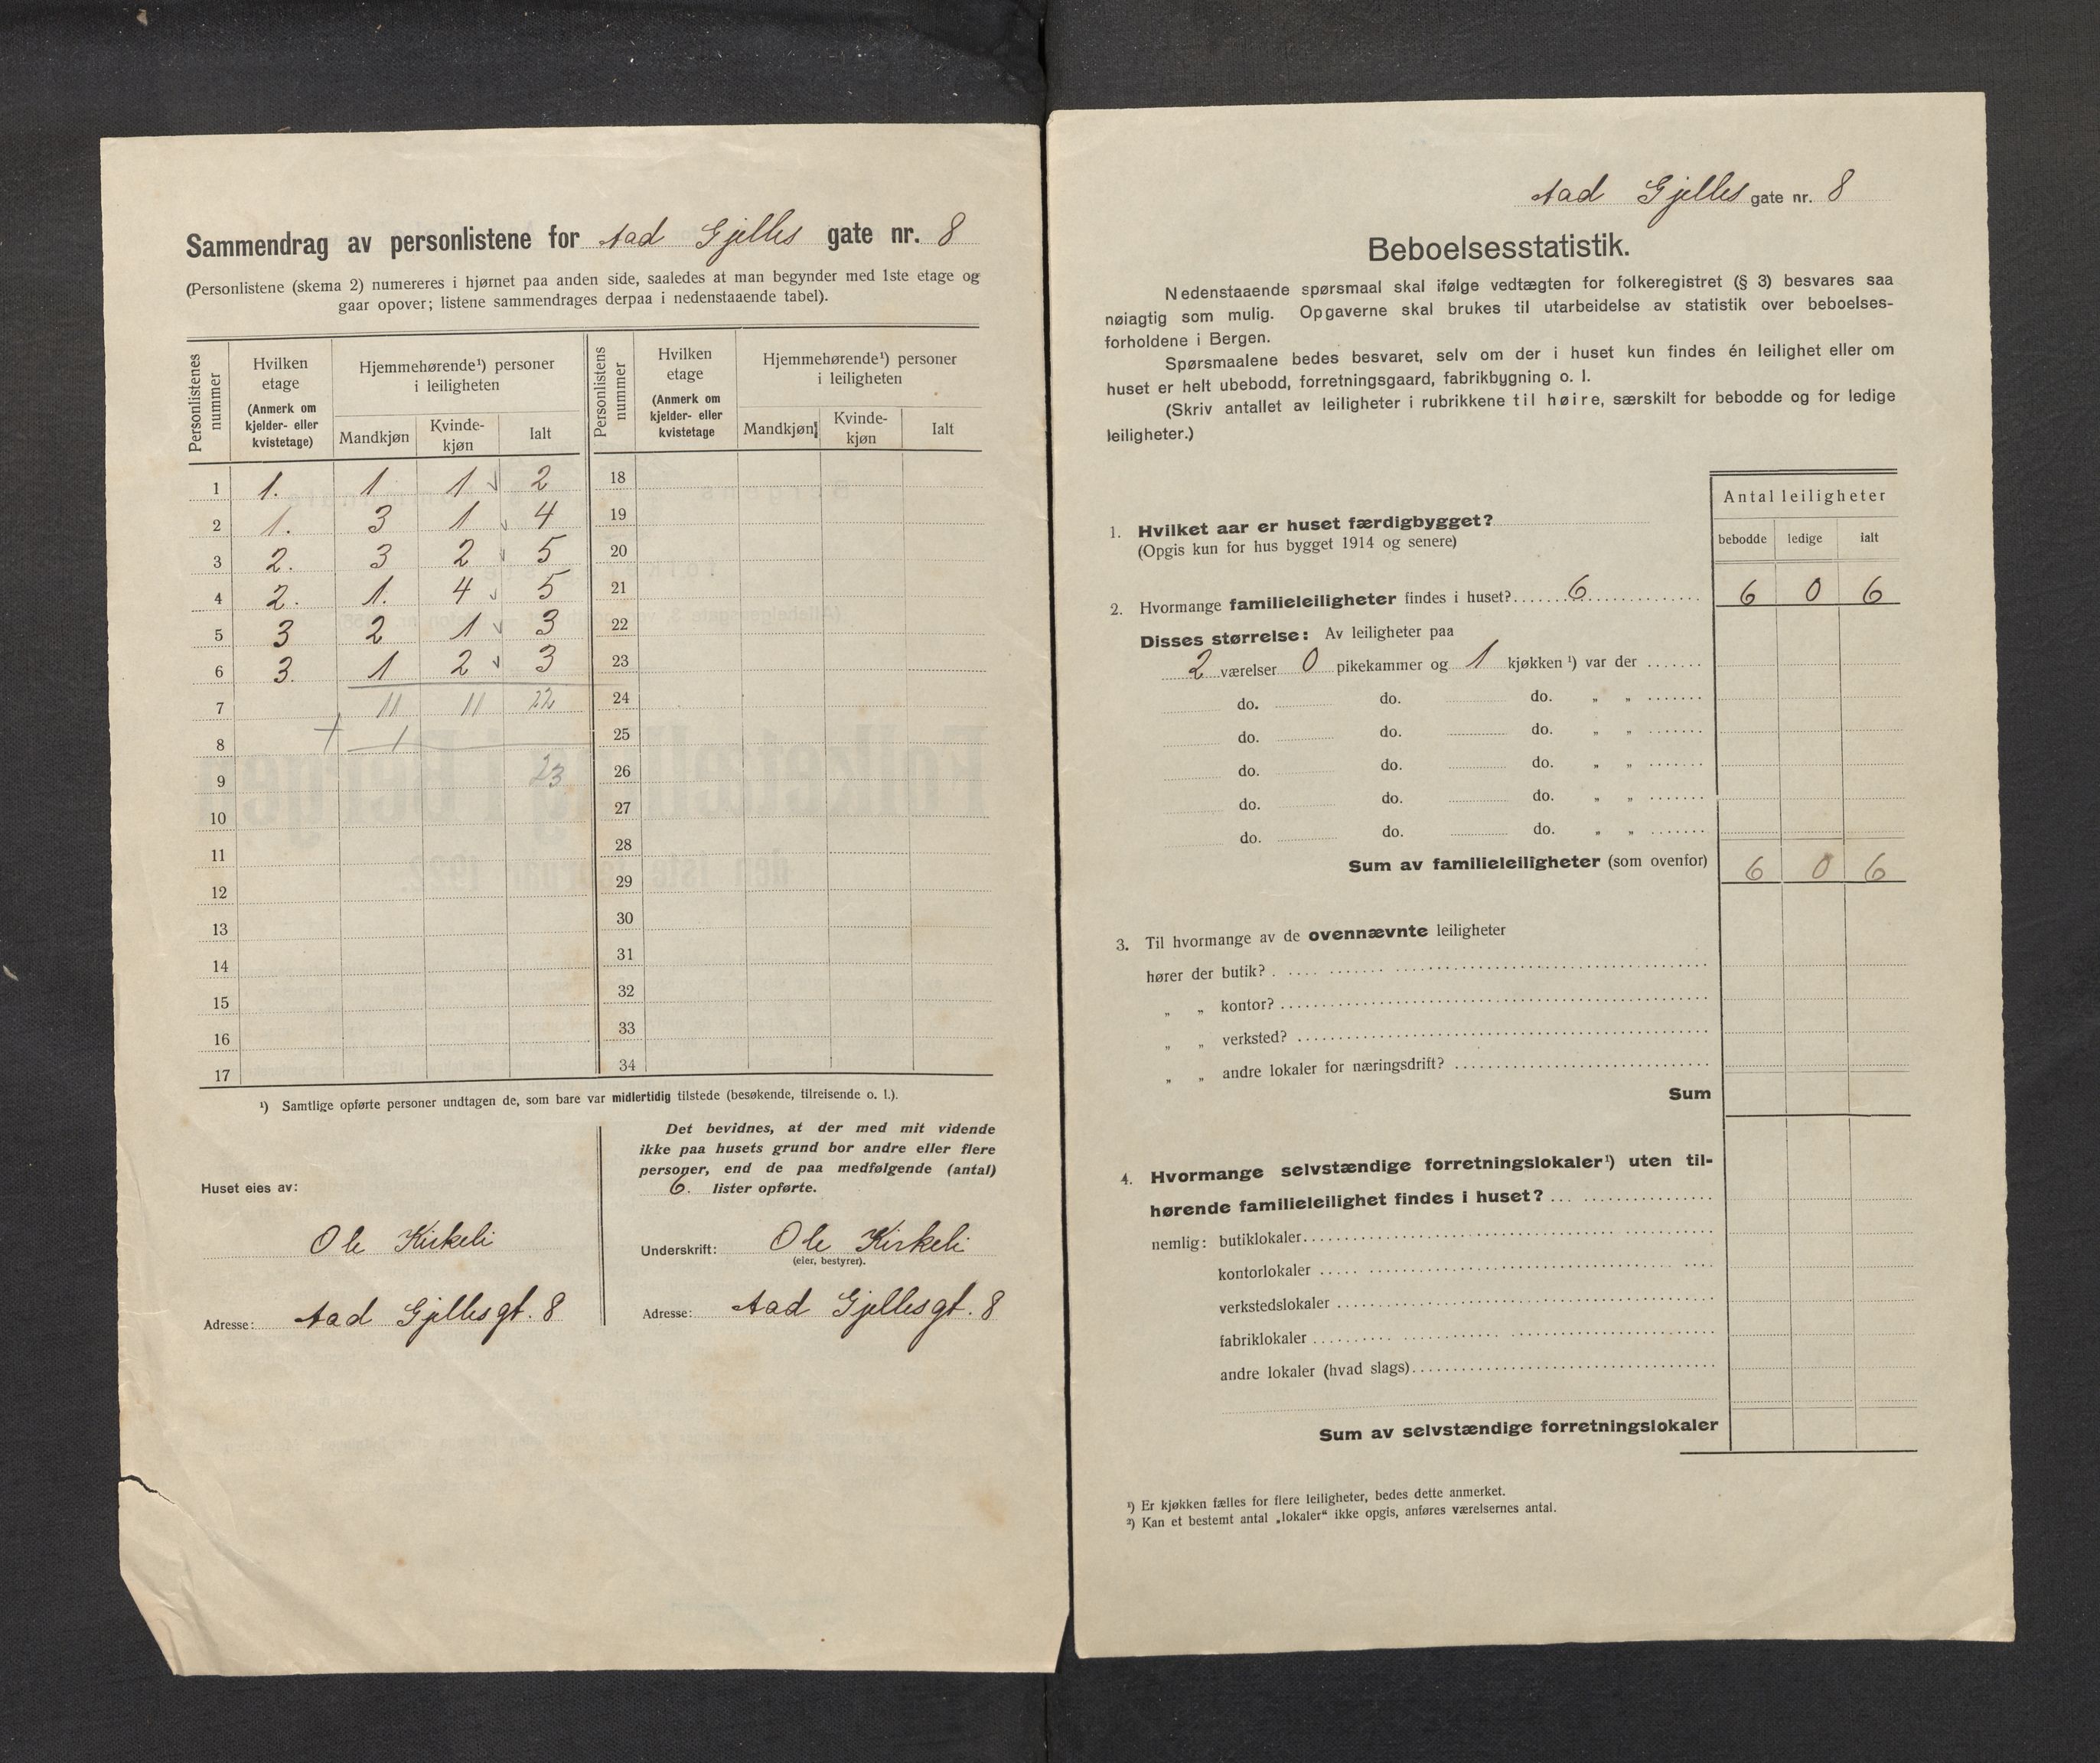 Sammendrag av personlistene for Aad Gjelles gate nr. 8
(Personlistene (skema 2) numereres i hjørnet paa anden side, saaledes at man begynder med 1ste etage og
gaar opover; listene sammendrages derpaa i nedenstaaende tabel).
Personlistenes nummer | Hvilken etage (Anmerk om kjelder- eller kvistetage) | Hjemmehørende¹) personer i leiligheten | Personlistens nummer | Hvilken etage (Anmerk om kjelder- eller kvistetage | Hjemmehørende¹) personer i leiligheten
Mandkjøn | Kvinde-kjøn | Ialt | Mandkjøn | Kvinde-kjøn | Ialt
1 1. 1 1 2 18
2 1. 3 1 4 19
3 2. 3 2 5 20
4 2. 1. 4 5 21
5 3 2 1 3 22
6 3. 1 2 3 23
7 11 11 22 24
8 + 1 25
9 23 26
10 27
11 28
12 29
13 30
14 31
15 32
16 33
17 34
¹) Samtlige opførte personer undtagen de, som bare var midlertidig tilstede (besøkende, tilreisende o. l.).
Huset eies av:
Ole Kirkeli
Adresse: Aad Gjellesgt. 8
Det bevidnes, at der med mit vidende
ikke paa husets grund bor andre eller flere
personer, end de paa medfølgende (antal)
6. lister opførte.
Underskrift: Ole Kirkeli
(eier, bestyrer).
Adresse: Aad Gjellesgt. 8
Aad Gjelles gate nr. 8
Beboelsesstatistik.
Nedenstaaende spørsmaal skal ifølge vedtægten for folkeregistret (§ 3) besvares saa
nøiagtig som mulig. Opgaverne skal brukes til utarbeidelse av statistik over beboelses-
forholdene i Bergen.
Spørsmaalene bedes besvaret, selv om der i huset kun findes én leilighet eller om
huset er helt ubebodd, forretningsgaard, fabrikbygning o. l.
(Skriv antallet av leiligheter i rubrikkene til høire, særskilt for bebodde og for ledige
leiligheter.)
Antal leiligheter
bebodde ledige ialt
1. Hvilket aar er huset færdigbygget?
(Opgis kun for hus bygget 1914 og senere)
2. Hvormange familieleiligheter findes i huset? 6 6 0 6
Disses størrelse: Av leiligheter paa
2 værelser 0 pikekammer og 1 kjøkken ¹) var der
do. do. do. „ „
do. do. do. „ „
do. do. do. „ „
do. do. do. „ „
do. do. do. „ „
Sum av familieleiligheter (som ovenfor) 6 0 6
3. Til hvormange av de ovennævnte leiligheter
hører der butik?
„ „ kontor?
„ „ verksted?
„ „ andre lokaler for næringsdrift?
Sum
4. Hvormange selvstændige forretningslokaler¹) uten til-
hørende familieleilighet findes i huset?
nemlig: butiklokaler
kontorlokaler
verkstedslokaler
fabriklokaler
andre lokaler (hvad slags)
Sum av selvstændige forretningslokaler
¹) Er kjøkken fælles for flere leiligheter, bedes dette anmerket.
²) Kan et bestemt antal „lokaler“ ikke opgis, anføres værelsernes antal.